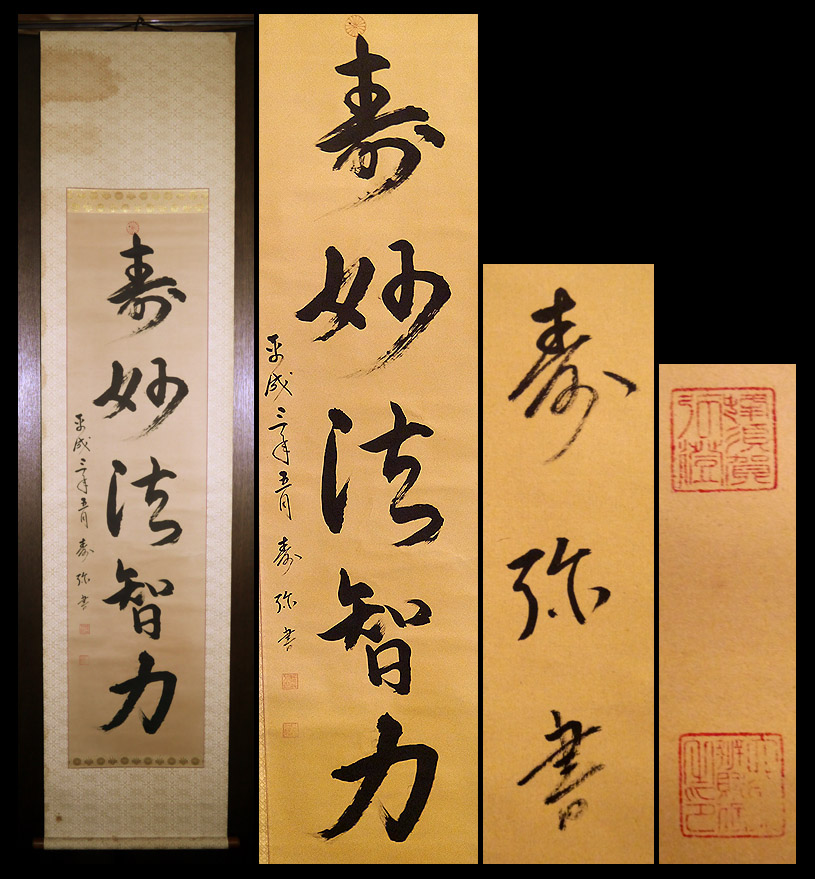 寿妙法智力
平成三年五月 寿弥書
寿妙法智力
平成三年五月 寿弥書
寿弥書